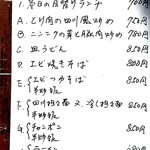 1. 本日の日替りランチ 700円
A. とり肉の四川風炒め 750円
B. ニンニクの芽と豚肉炒め 780円
C. 皿うどん 850円
D. エビ焼きそば 800円
E. エビつかそば 850円
半炒飯
F. 四川担々麺 又は 冷し担々麺 850円
半炒飯
G. チャンポン 850円
半炒飯
ラーメン